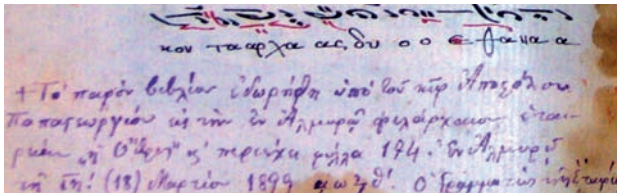 κον τα αρχα ας, δυ ο ο ε θα να α
+ Τὸ παρὸν βιβλίον ἐδωρήθη ὑπὸ τοῦ κυρ Ἀποστόλου
Παπαγεωργίου εἰς τὴν ἐν Ἁλμυρῷ φιλάρχαιον ἑται-
ρείαν "ἡ Ὄθρυς" κ' περιέχει φύλλα 174. Ἐν Ἁλμυρῷ
τῇ ιη! (18) Μαρτίου 1899 αωϟθ'. Ὁ Γραμματεὺς τῆς Ἑταιρία